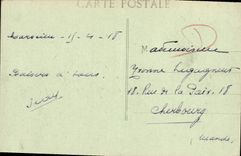 CARTE POSTALE
Marseille - 15-4-18
Mademoiselle
Baisers à tous
Yvonne
18. Rue de la Paix. 18
Cherbourg
Manche.